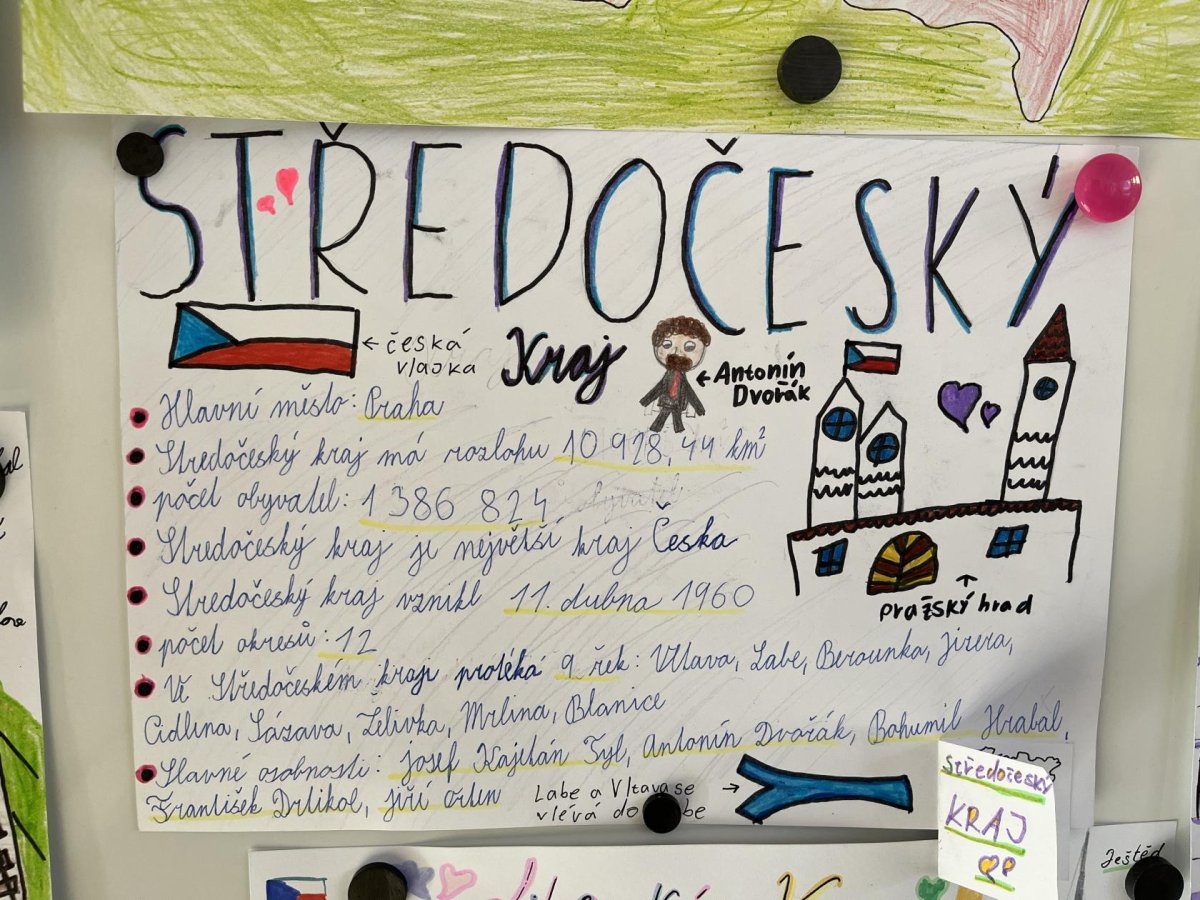 STŘEDOČESKÝ
Kraj
← česká
vlajka
← Antonín
Dvořák
Hlavní město: Praha
Středočeský kraj má rozlohu 10 928,44 km²
počet obyvatel: 1 386 824
Středočeský kraj je největší kraj Česka
Středočeský kraj vznikl 11. dubna 1960
počet okresů: 12
pražský hrad
Ve Středočeském kraji protéká 9 řek: Vltava, Labe, Berounka, Jizera,
Cidlina, Sázava, Želivka, Mrlina, Blanice
Slavné osobnosti: Josef Kajetán Tyl, Antonín Dvořák, Bohumil Hrabal,
František Drtikol, Jiří Orten
Labe a Vltava se →
vlévá do
Středočeský
KRAJ
Ještěd